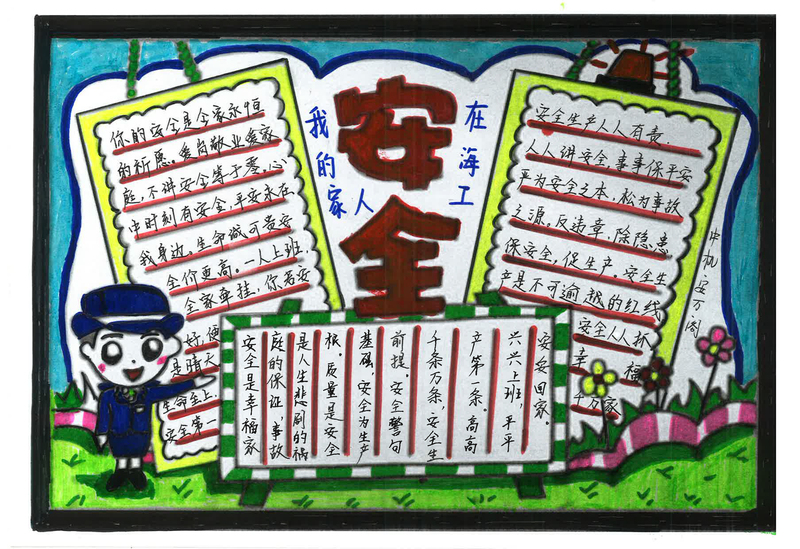 安全
我的家人
在海工
你的安全是全家永恒
的祈愿。爱岗敬业爱家
庭,不讲安全等于零,心
中时刻有安全,平安永在
我身边,生命诚可贵安
全价更高。一人上班,
全家牵挂,你若安
好,便
是晴天
生命至上,
安全第一
安全生产人人有责.
人人讲安全事事保平安
严为安全之本,松为事故
之源,反违章,除隐患
保安全,促生产。安全生
产是不可逾越的红线
安全人人抓
幸福
千万家
安全是幸福家
庭的保证,事故
是人生悲剧的祸
根。质量是安全
基础,安全为生产
前提。安全警句
千条万条,安全生
产第一条。高高
兴兴上班,平平
安安回家。